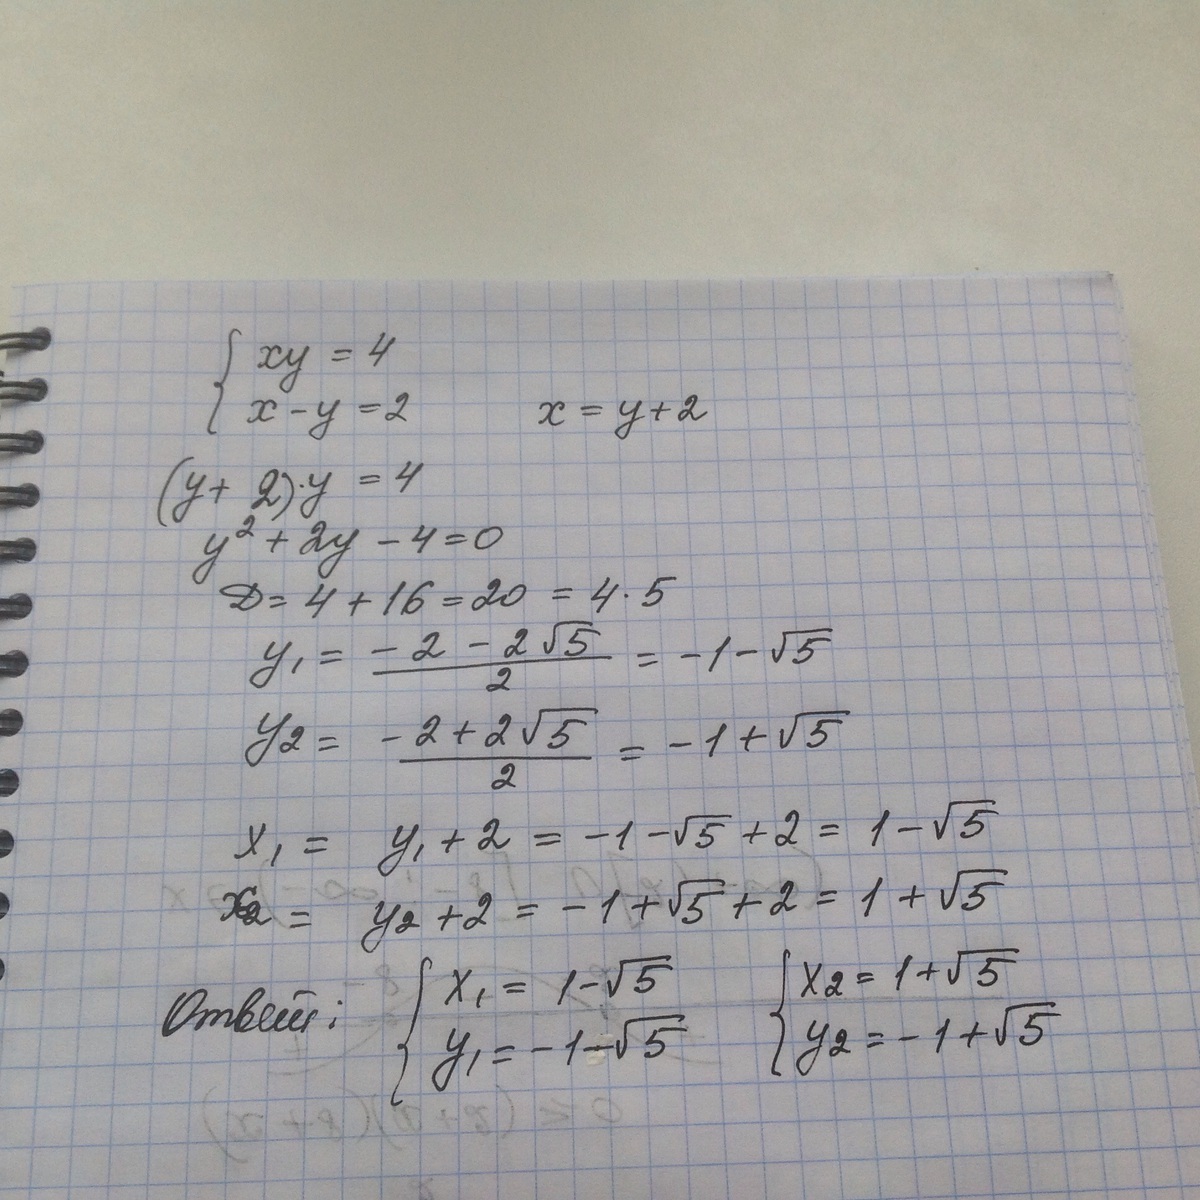 { xy = 4
x - y = 2 x = y + 2
(y + 2)·y = 4
y² + 2y - 4 = 0
D = 4 + 16 = 20 = 4·5
y₁ = (-2 - 2√5)/2 = -1 - √5
y₂ = (-2 + 2√5)/2 = -1 + √5
x₁ = y₁ + 2 = -1 - √5 + 2 = 1 - √5
x₂ = y₂ + 2 = -1 + √5 + 2 = 1 + √5
Ответ: { x₁ = 1 - √5 { x₂ = 1 + √5
y₁ = -1 - √5 y₂ = -1 + √5